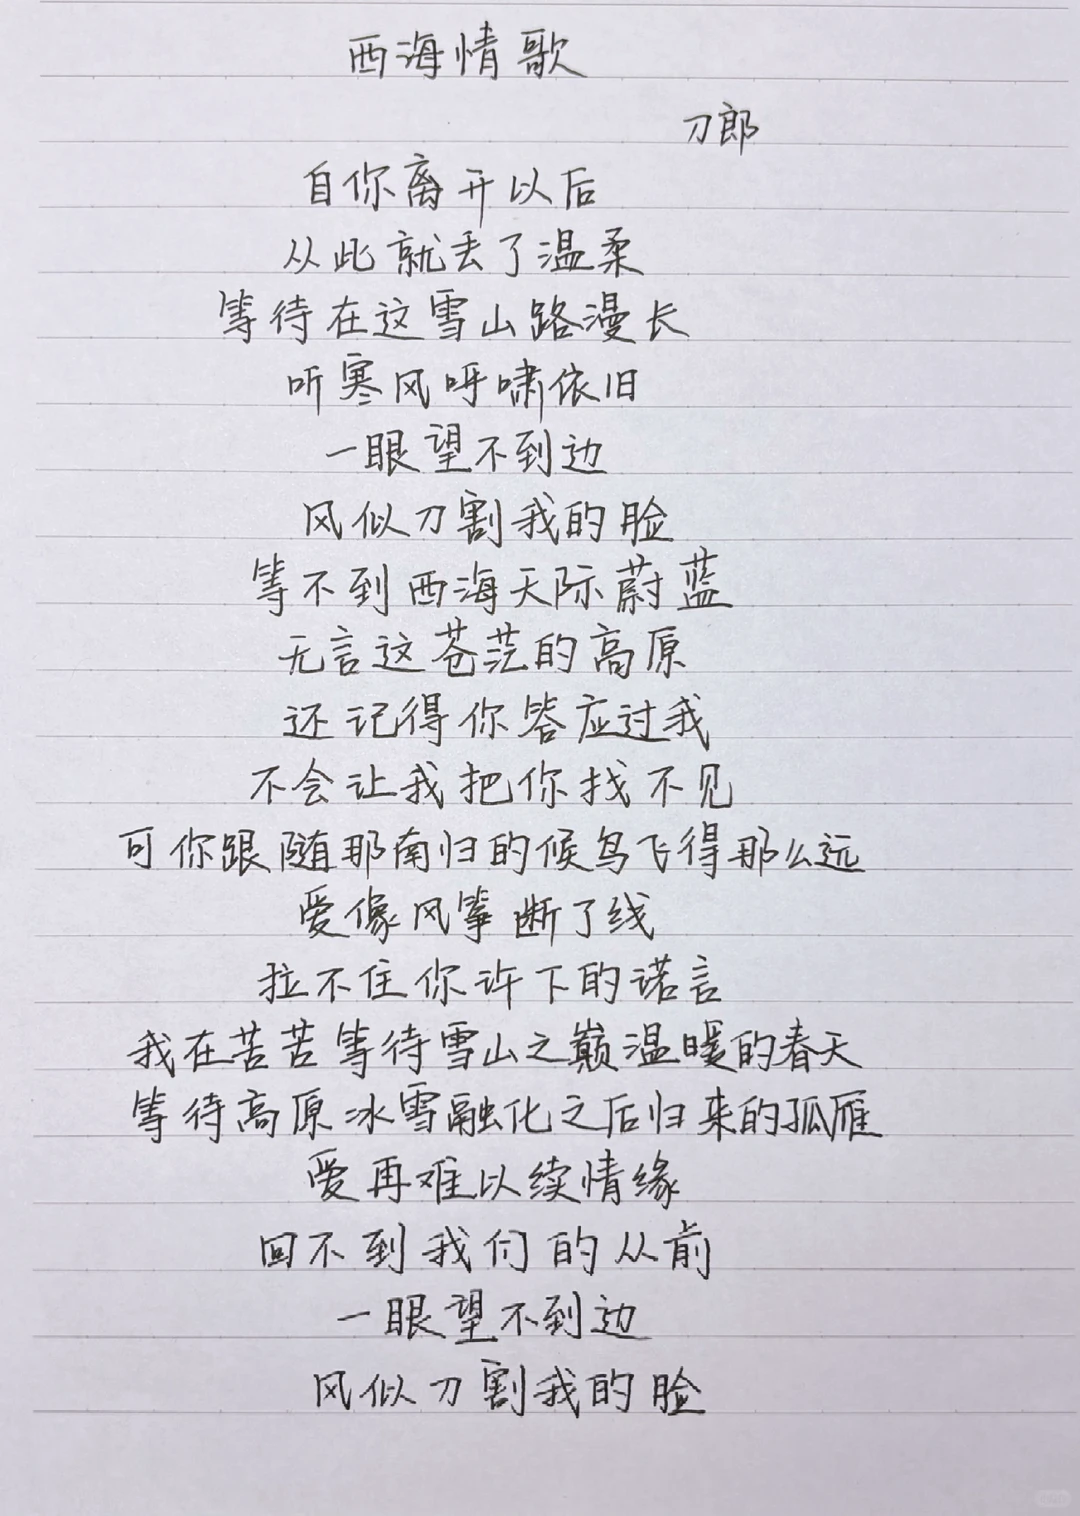 西海情歌
刀郎
自你离开以后
从此就丢了温柔
等待在这雪山路漫长
听寒风呼啸依旧
一眼望不到边
风似刀割我的脸
等不到西海天际蔚蓝
无言这苍茫的高原
还记得你答应过我
不会让我把你找不见
可你跟随那南归的候鸟飞得那么远
爱像风筝断了线
拉不住你许下的诺言
我在苦苦等待雪山之巅温暖的春天
等待高原冰雪融化之后归来的孤雁
爱再难以续情缘
回不到我们的从前
一眼望不到边
风似刀割我的脸